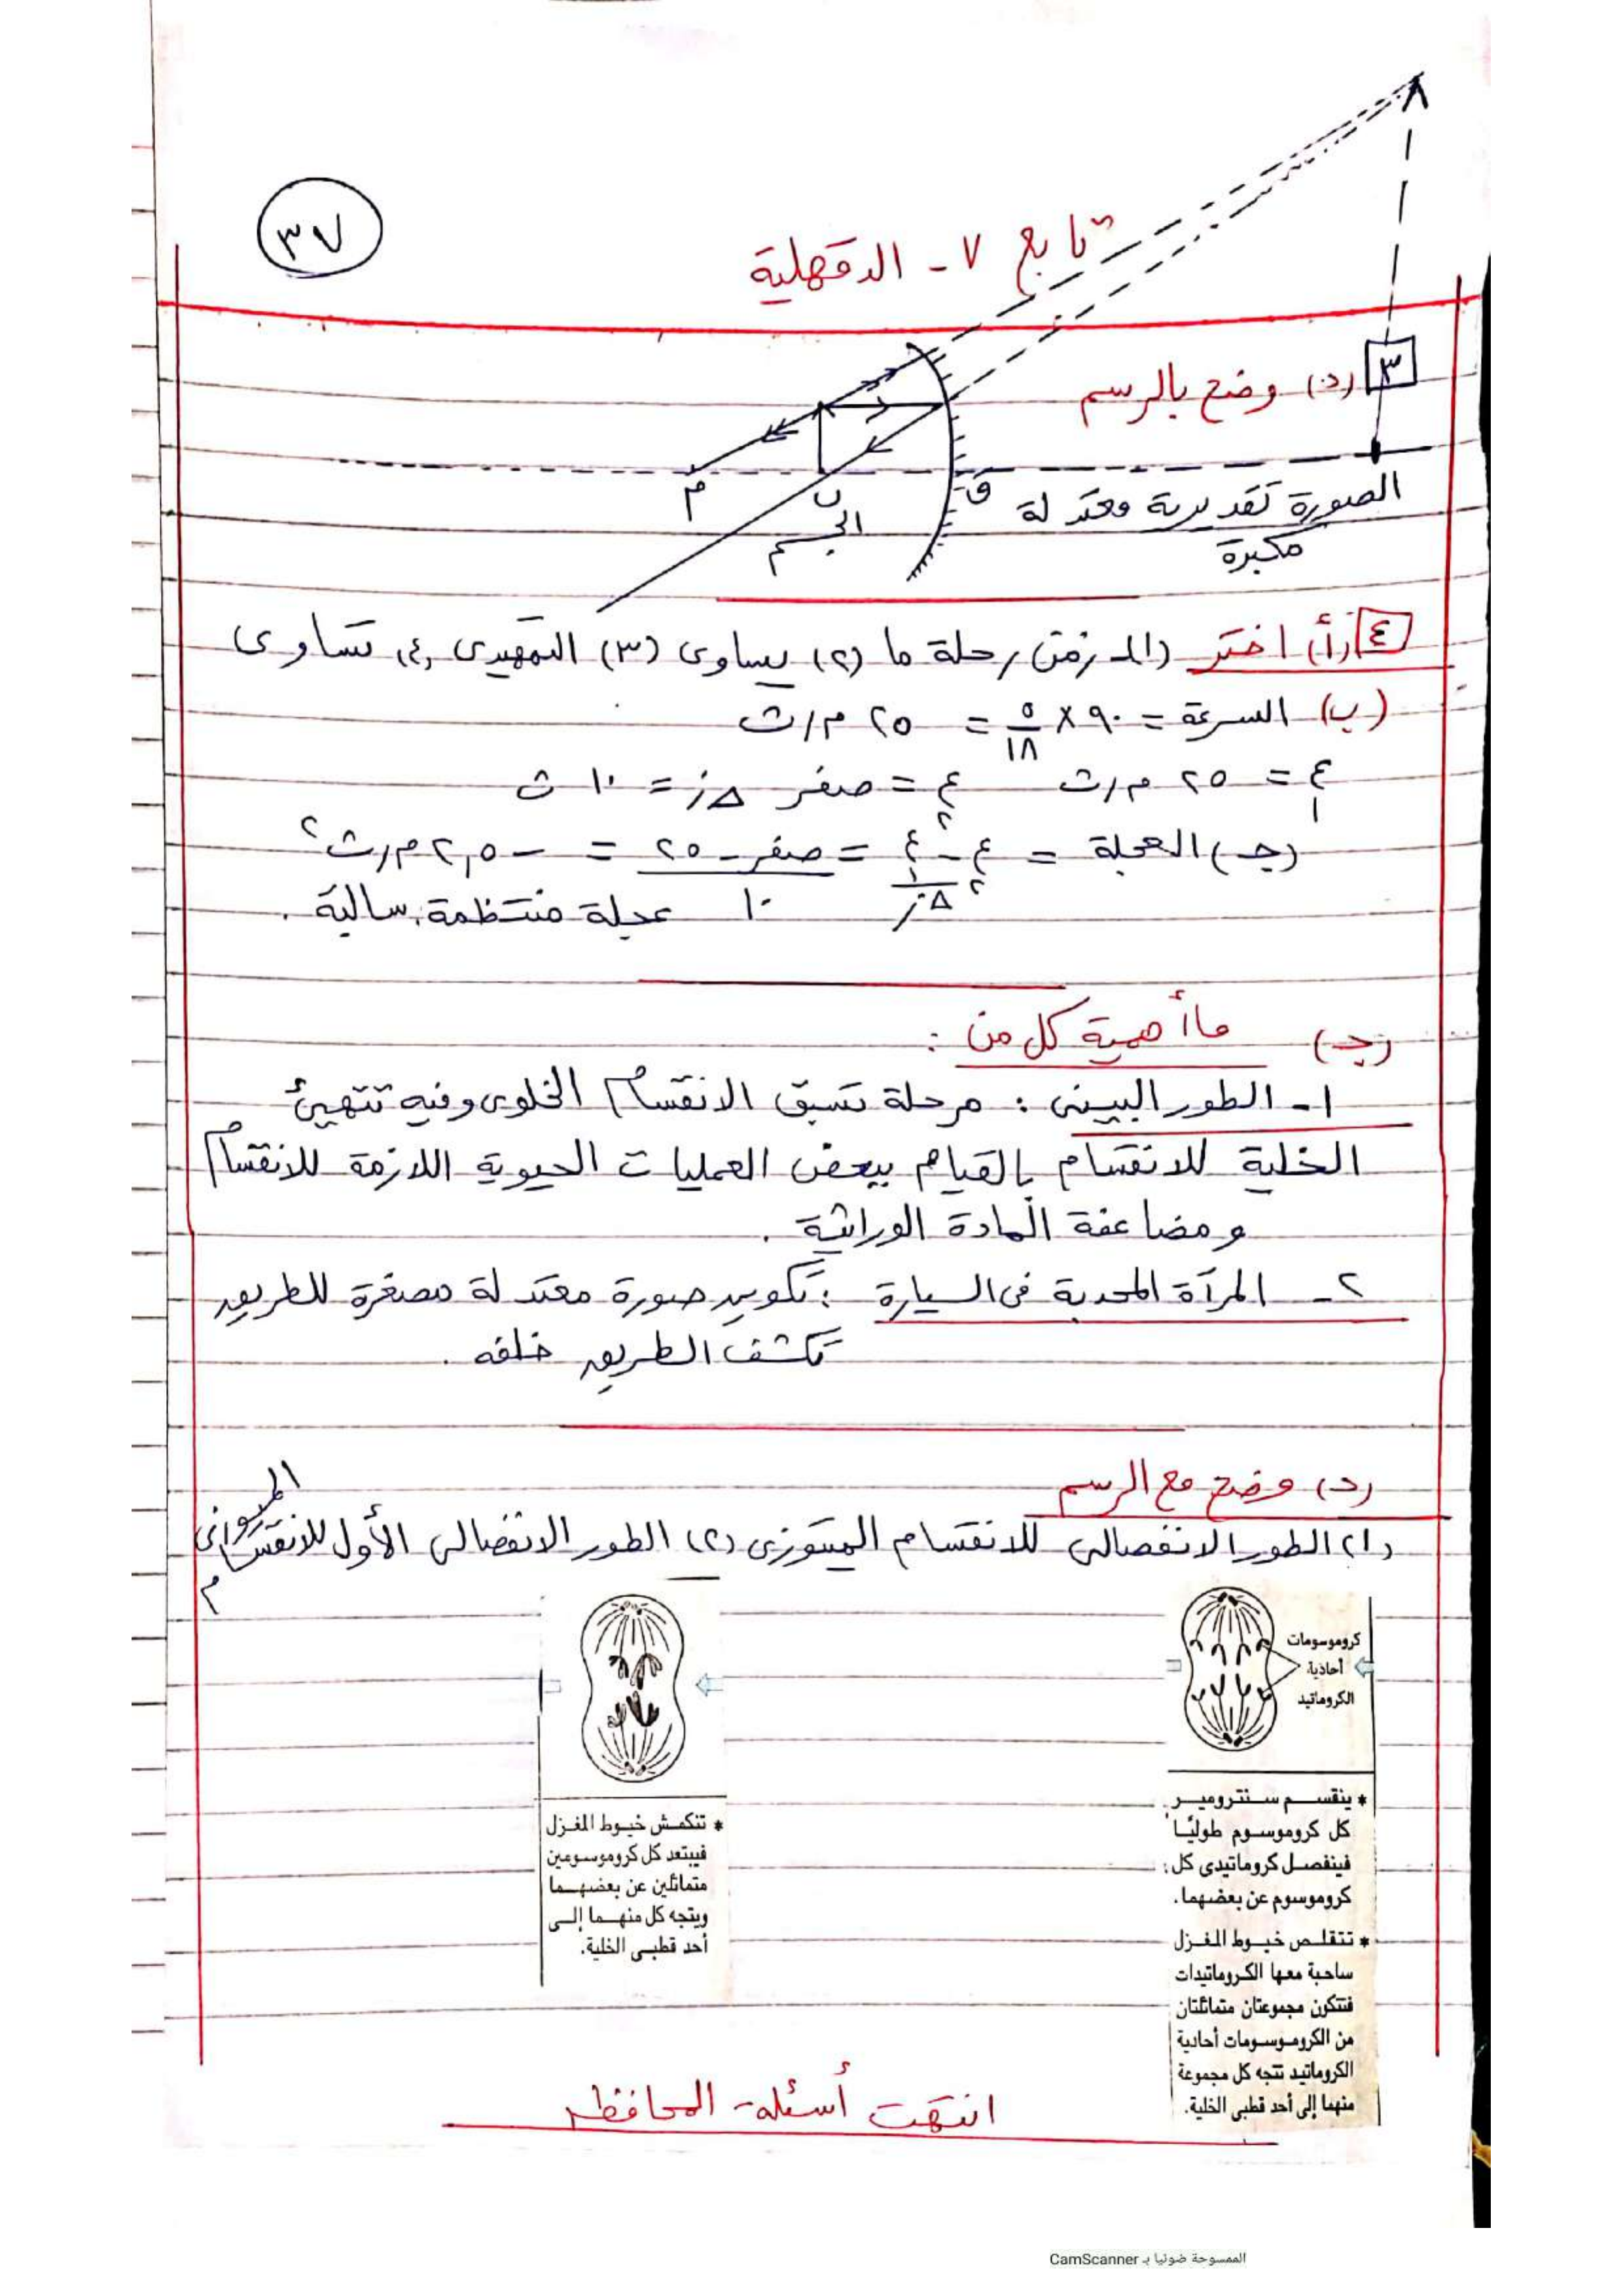 ٣٧
تابع ٧ - الدقهلية
٣ (د) وضح بالرسم
م
ن
ق
الجسم
الصورة تقديرية معتدلة
مكبرة
٤ (أ) اختر (١) زمن رحلة ما (٢) يساوى (٣) التمهيدى (٤) تساوى
(ب) السرعة = ٩٠ × ٥/١٨ = ٢٥ م/ث
ع١ = ٢٥ م/ث ع٢ = صفر Δز = ١٠ ث
(جـ) العجلة = ع٢ - ع١ / Δز = صفر - ٢٥ / ١٠ = - ٢,٥ م/ث٢
عجلة منتظمة سالبة .
(جـ) ما أهمية كل من :
١ - الطور البينى : مرحلة تسبق الانقسام الخلوى وفيه تتهيئ
الخلية للانقسام بالقيام ببعض العمليات الحيوية اللازمة للانقسام
ومضاعفة المادة الوراثية .
٢ - المرآة المحدبة فى السيارة : تكوين صورة معتدلة مصغرة للطريق
تكشف الطريق خلفه .
(د) وضح مع الرسم
(١) الطور الانفصالى للانقسام الميتوزى (٢) الطور الانفصالى الأول للانقسام الميوزى
كروموسومات
أحادية
الكروماتيد
* ينقسم سنترومير
كل كروموسوم طوليًا
فينفصل كروماتيدى كل
كروموسوم عن بعضهما.
* تتقلص خيوط المغزل
ساحبة معها الكروماتيدات
فتتكون مجموعتان متماثلتان
من الكروموسومات أحادية
الكروماتيد تتجه كل مجموعة
منهما إلى أحد قطبى الخلية.
* تنكمش خيوط المغزل
فيبتعد كل كروموسومين
متماثلين عن بعضهما
ويتجه كل منهما إلى
أحد قطبى الخلية.
انتهت أسئلة المحافظ
الممسوحة ضوئيا بـ CamScanner